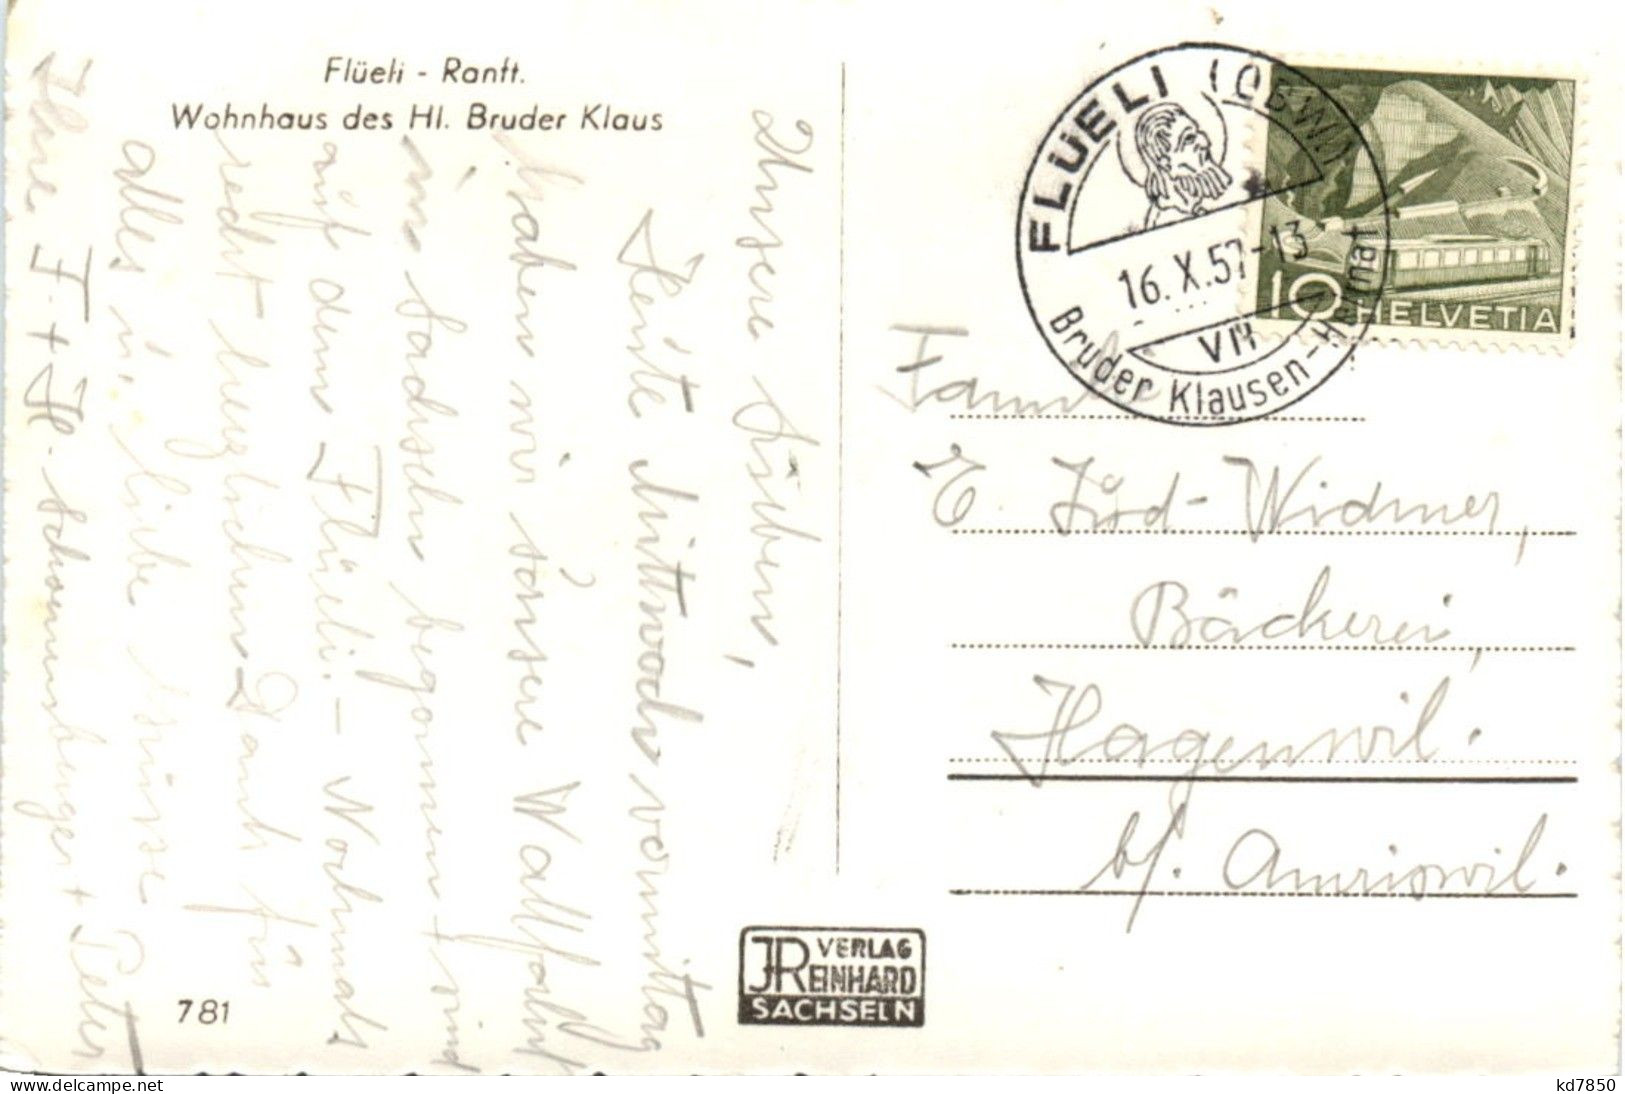 Flüeli - Ranft.
Wohnhaus des Hl. Bruder Klaus
Unsere Lieben,
Heute Mittwoch vormittag
haben wir unsere Wallfahrt
in Sachseln begonnen + sind
auf dem Flüeli. - Nochmals
recht herzlichen Dank für
alles u. liebe Grüsse
Ihre F. + H. Schwennberger + Peter
781
FLÜELI (OBW.)
16. X. 57-13
VII
Bruder Klausen-Heimat
10 HELVETIA
Familie
E. Jud-Widmer,
Bäckerei,
Hagenwil.
bf. Amriswil.
JR VERLAG
REINHARD
SACHSELN
www.delcampe.net
kd7850